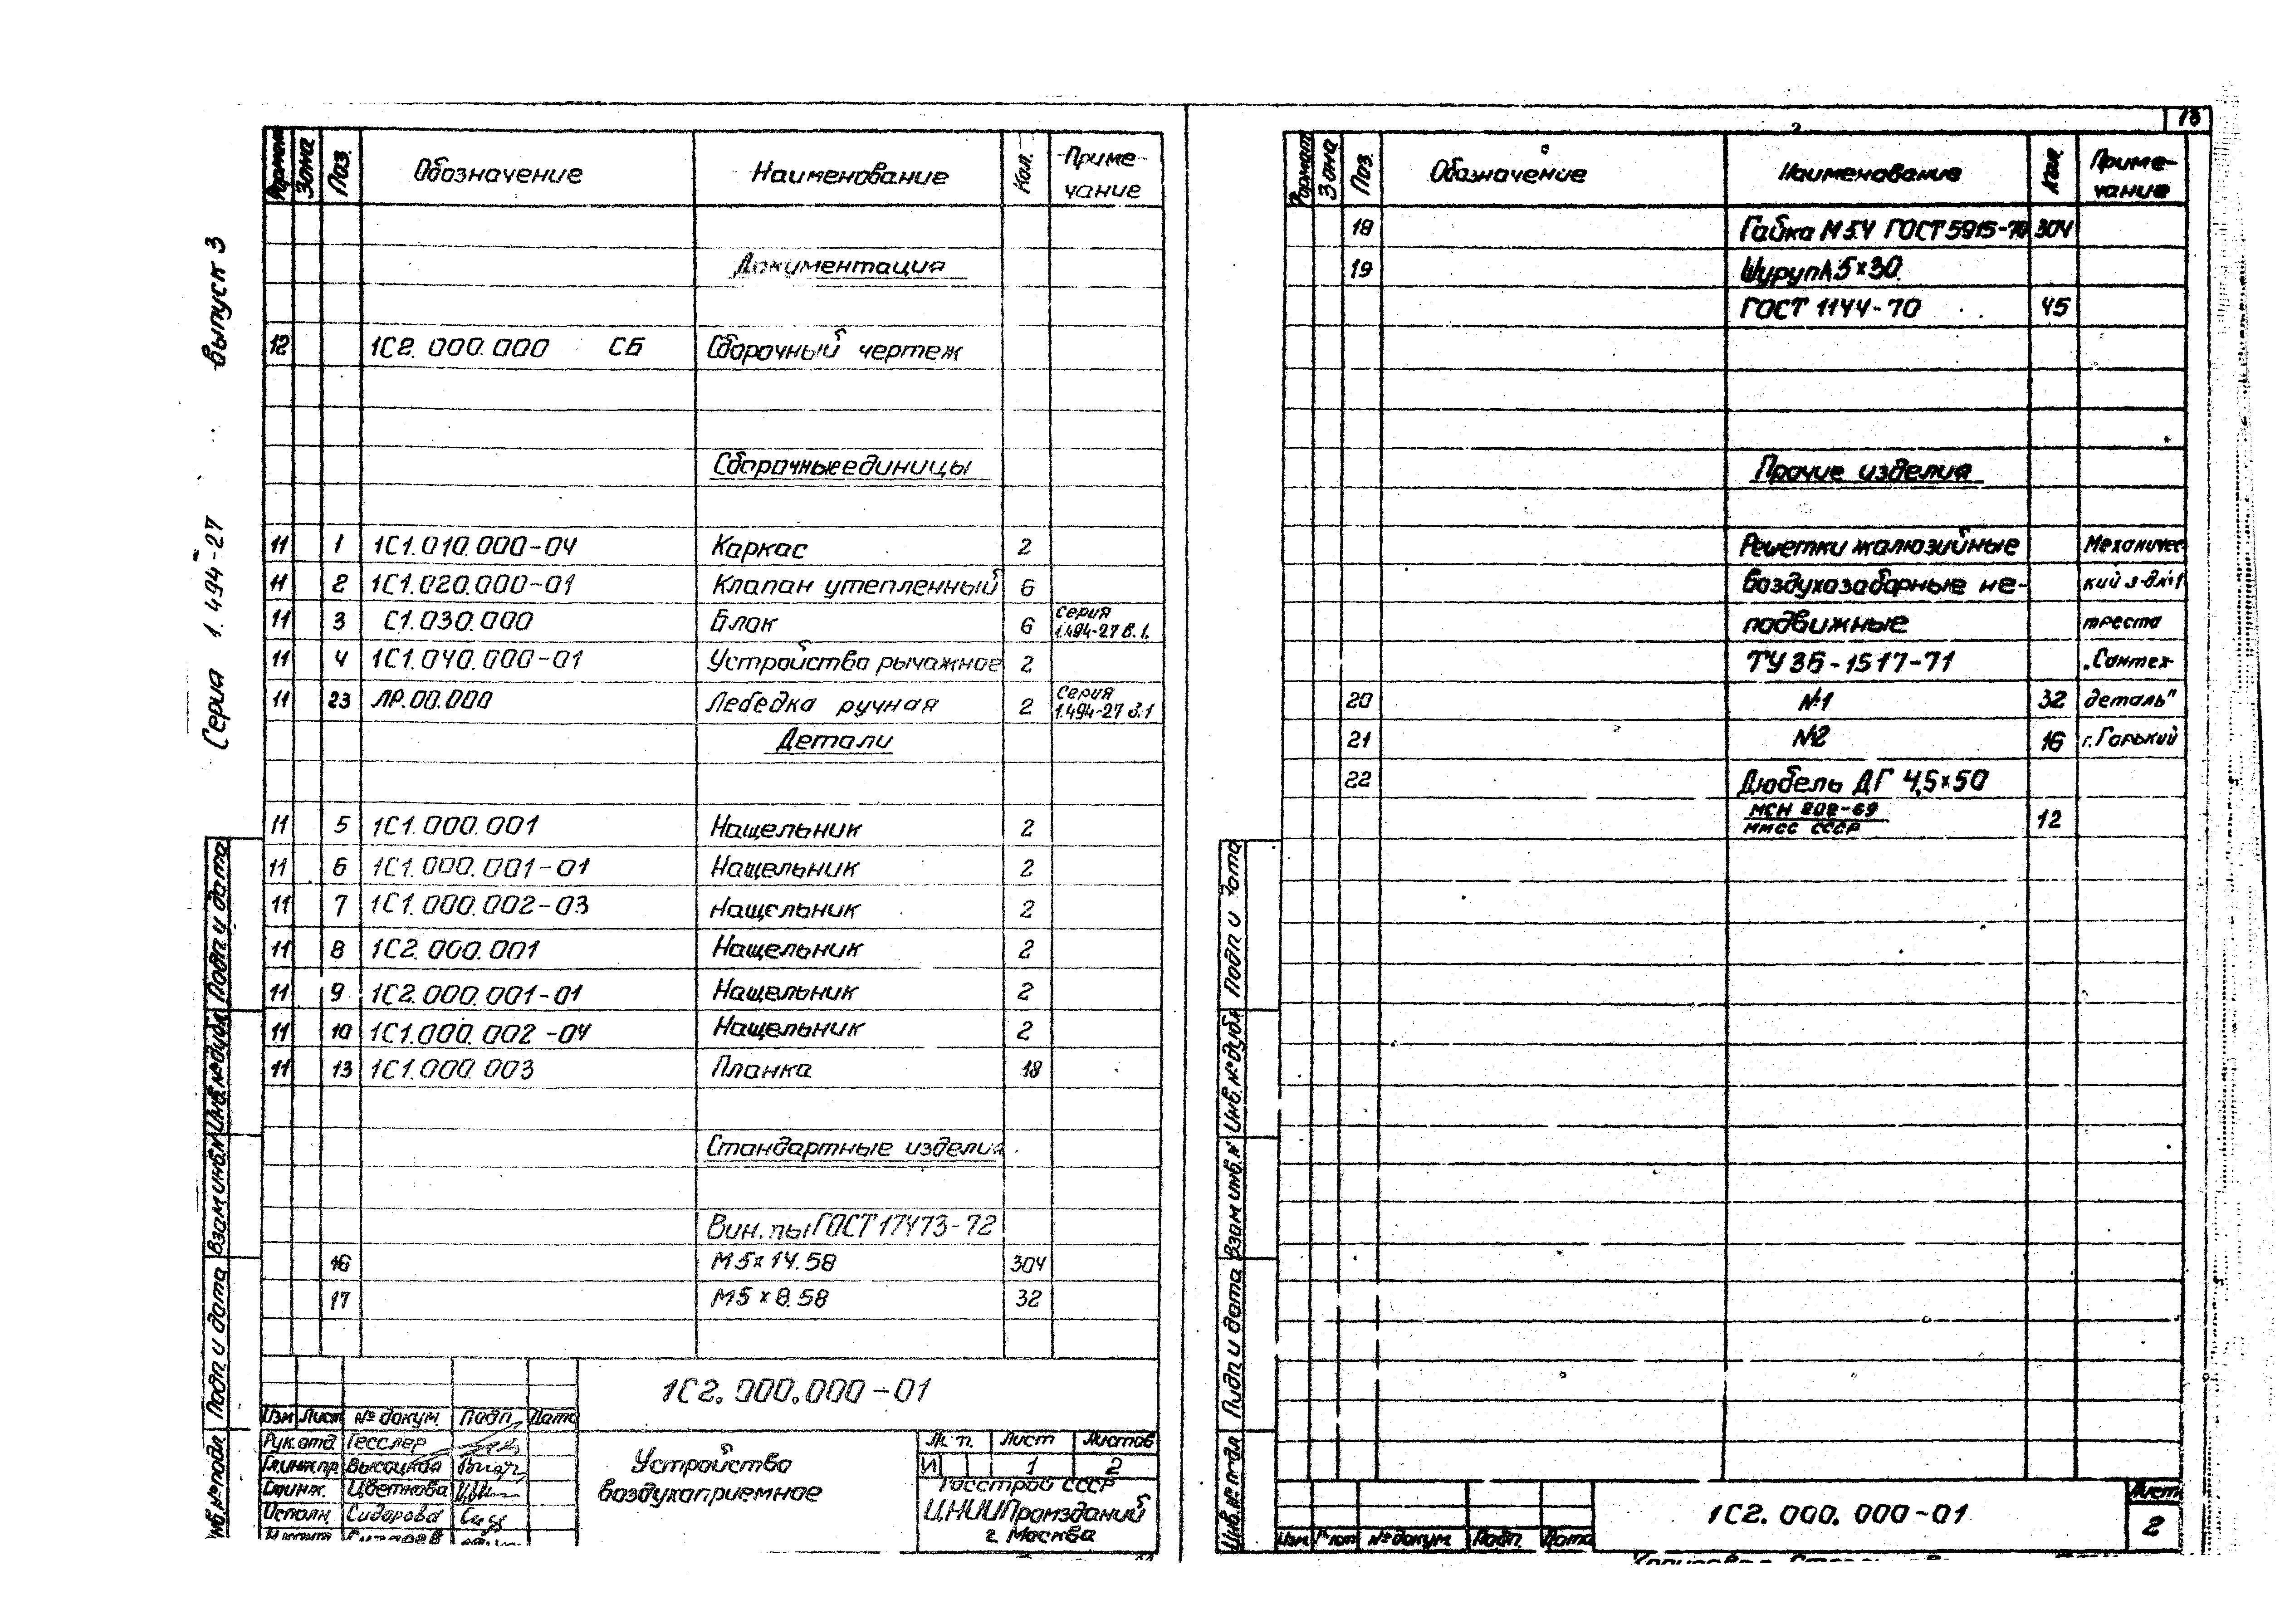 Серия 1.494-27 выпуск 3
Формат Зона Поз. Обозначение Наименование Кол. Приме-
чание
Документация
12 1С2.000.000 СБ Сборочный чертеж
Сборочные единицы
11 1 1С1.010.000-04 Каркас 2
11 2 1С1.020.000-01 Клапан утепленный 6
11 3 С1.030.000 Блок 6 Серия
1.494-27 в.1.
11 4 1С1.040.000-01 Устройство рычажное 2
11 23 ЛР.00.000 Лебедка ручная 2 Серия
1.494-27 в.1
Детали
11 5 1С1.000.001 Нащельник 2
11 6 1С1.000.001-01 Нащельник 2
11 7 1С1.000.002-03 Нащельник 2
11 8 1С2.000.001 Нащельник 2
11 9 1С2.000.001-01 Нащельник 2
11 10 1С1.000.002-04 Нащельник 2
11 13 1С1.000.003 Планка 18
Стандартные изделия
Винты ГОСТ 17473-72
16 М5х14.58 304
17 М5х8.58 32
1С2.000.000-01
Изм Лист № докум. Подп. Дата
Рук.отд. Гесслер
Гл.инж.пр. Высоцкая
Ст.инж. Цветкова
Исполн. Сидорова
Устройство
воздухоприемное
Лит. Лист Листов
И 1 2
Госстрой СССР
ЦНИИПромзданий
г. Москва
Инв.№подл. Подп. и дата Взам.инв.№ Инв.№дубл. Подп. и дата
13
Формат Зона Поз. Обозначение Наименование Кол. Приме-
чание
18 Гайка М5.4 ГОСТ 5915-70 304
19 Шуруп А5х30.
ГОСТ 1144-70 45
Прочие изделия
Решетки жалюзийные Механичес-
воздухозаборные не- кий з-д№1
подвижные треста
ТУ 36-1517-71 „Сантех-
20 №1 32 деталь"
21 №2 16 г.Горький
22 Дюбель ДГ 4,5х50
МСН 202-69
ММСС СССР 12
Инв.№подл. Подп. и дата Взам.инв.№ Инв.№дубл. Подп. и дата
Изм Лист № докум. Подп. Дата
1С2.000.000-01
Лист
2